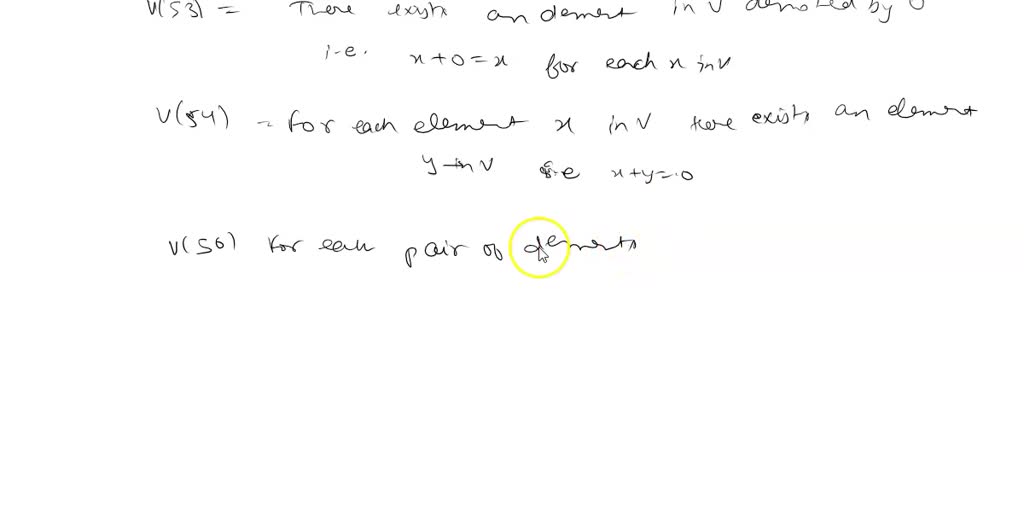 V(S3) = There exists an element in V denoted by 0
i.e. x+0=x for each x in V
V(S4) = For each element x in V there exists an element
y in V s.e x+y=0
V(S6) For each pair of elements